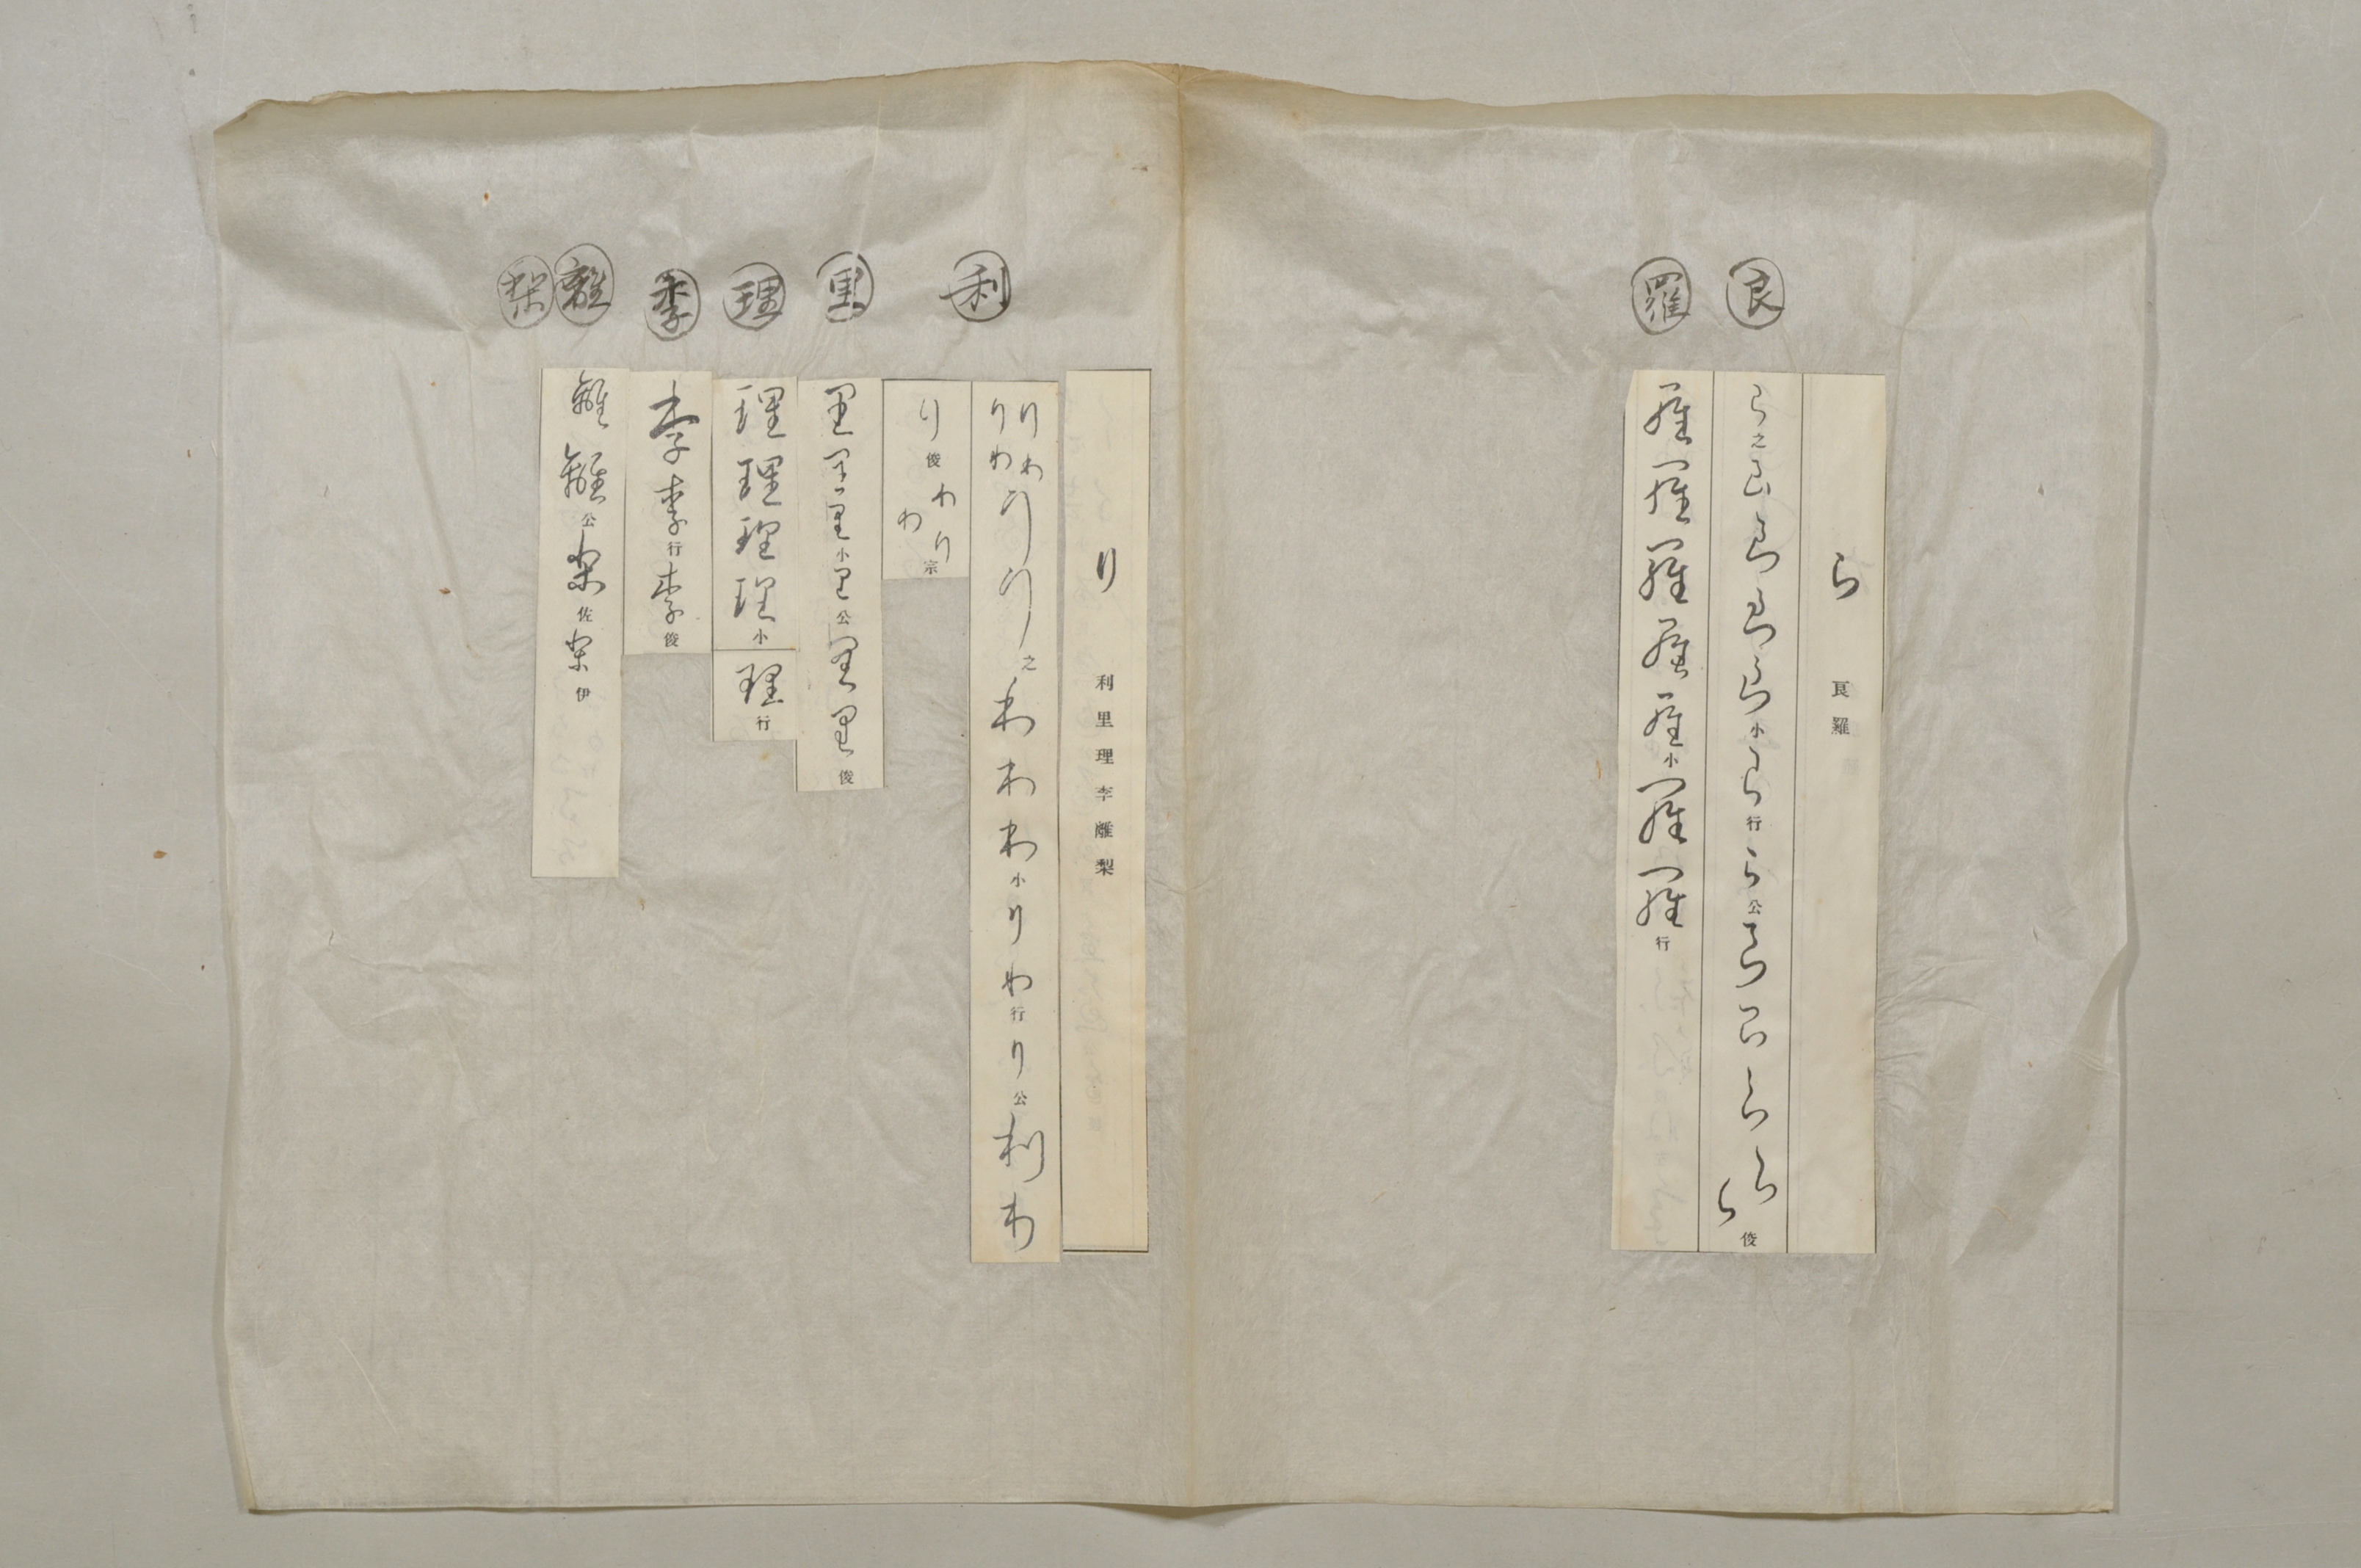 良
羅
ら 良 羅
ら 之 ら ら ら ら 小 ら 行 ら 公 ら ら ら ら ら 俊
羅 羅 羅 羅 羅 小 羅 羅 行
利
里
理
李
離
梨
り 利 里 理 李 離 梨
り り り り り り 之 り り り 小 り り 行 り 公 利 り
り 俊 り り り 宗
里 里 里 小 里 公 里 里 俊
理 理 理 理 小
理 行
李 李 行 李 俊
離 離 公 梨 佐 梨 伊